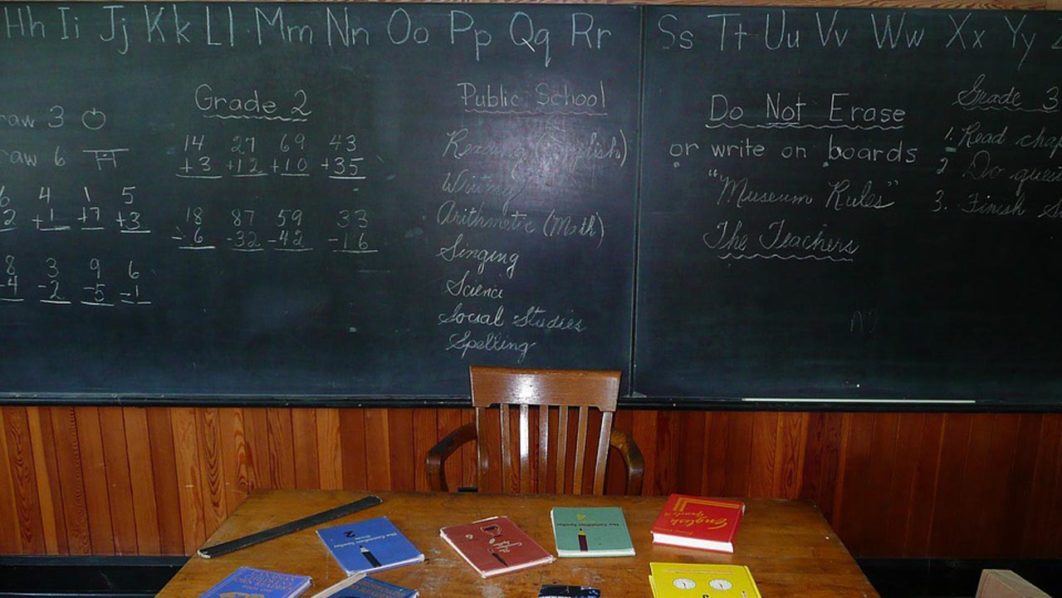 Hh Ii Jj Kk Ll Mm Nn Oo Pp Qq Rr Ss Tt Uu Vv Ww Xx Yy
raw 3
raw 6
4 1 5
+1 +7 +3
8 3 9 6
-4 -2 -5 -1
Grade 2
14 27 69 43
+3 +12 +10 +35
18 87 59 33
-6 -32 -42 -16
Public School
Reading (English)
Writing
Arithmetic (Math)
Singing
Science
Social Studies
Spelling
Do Not Erase
or write on boards
"Museum Rules"
The Teachers
Grade 3
1. Read chap
2 Do ques
3. Finish
2
4
English